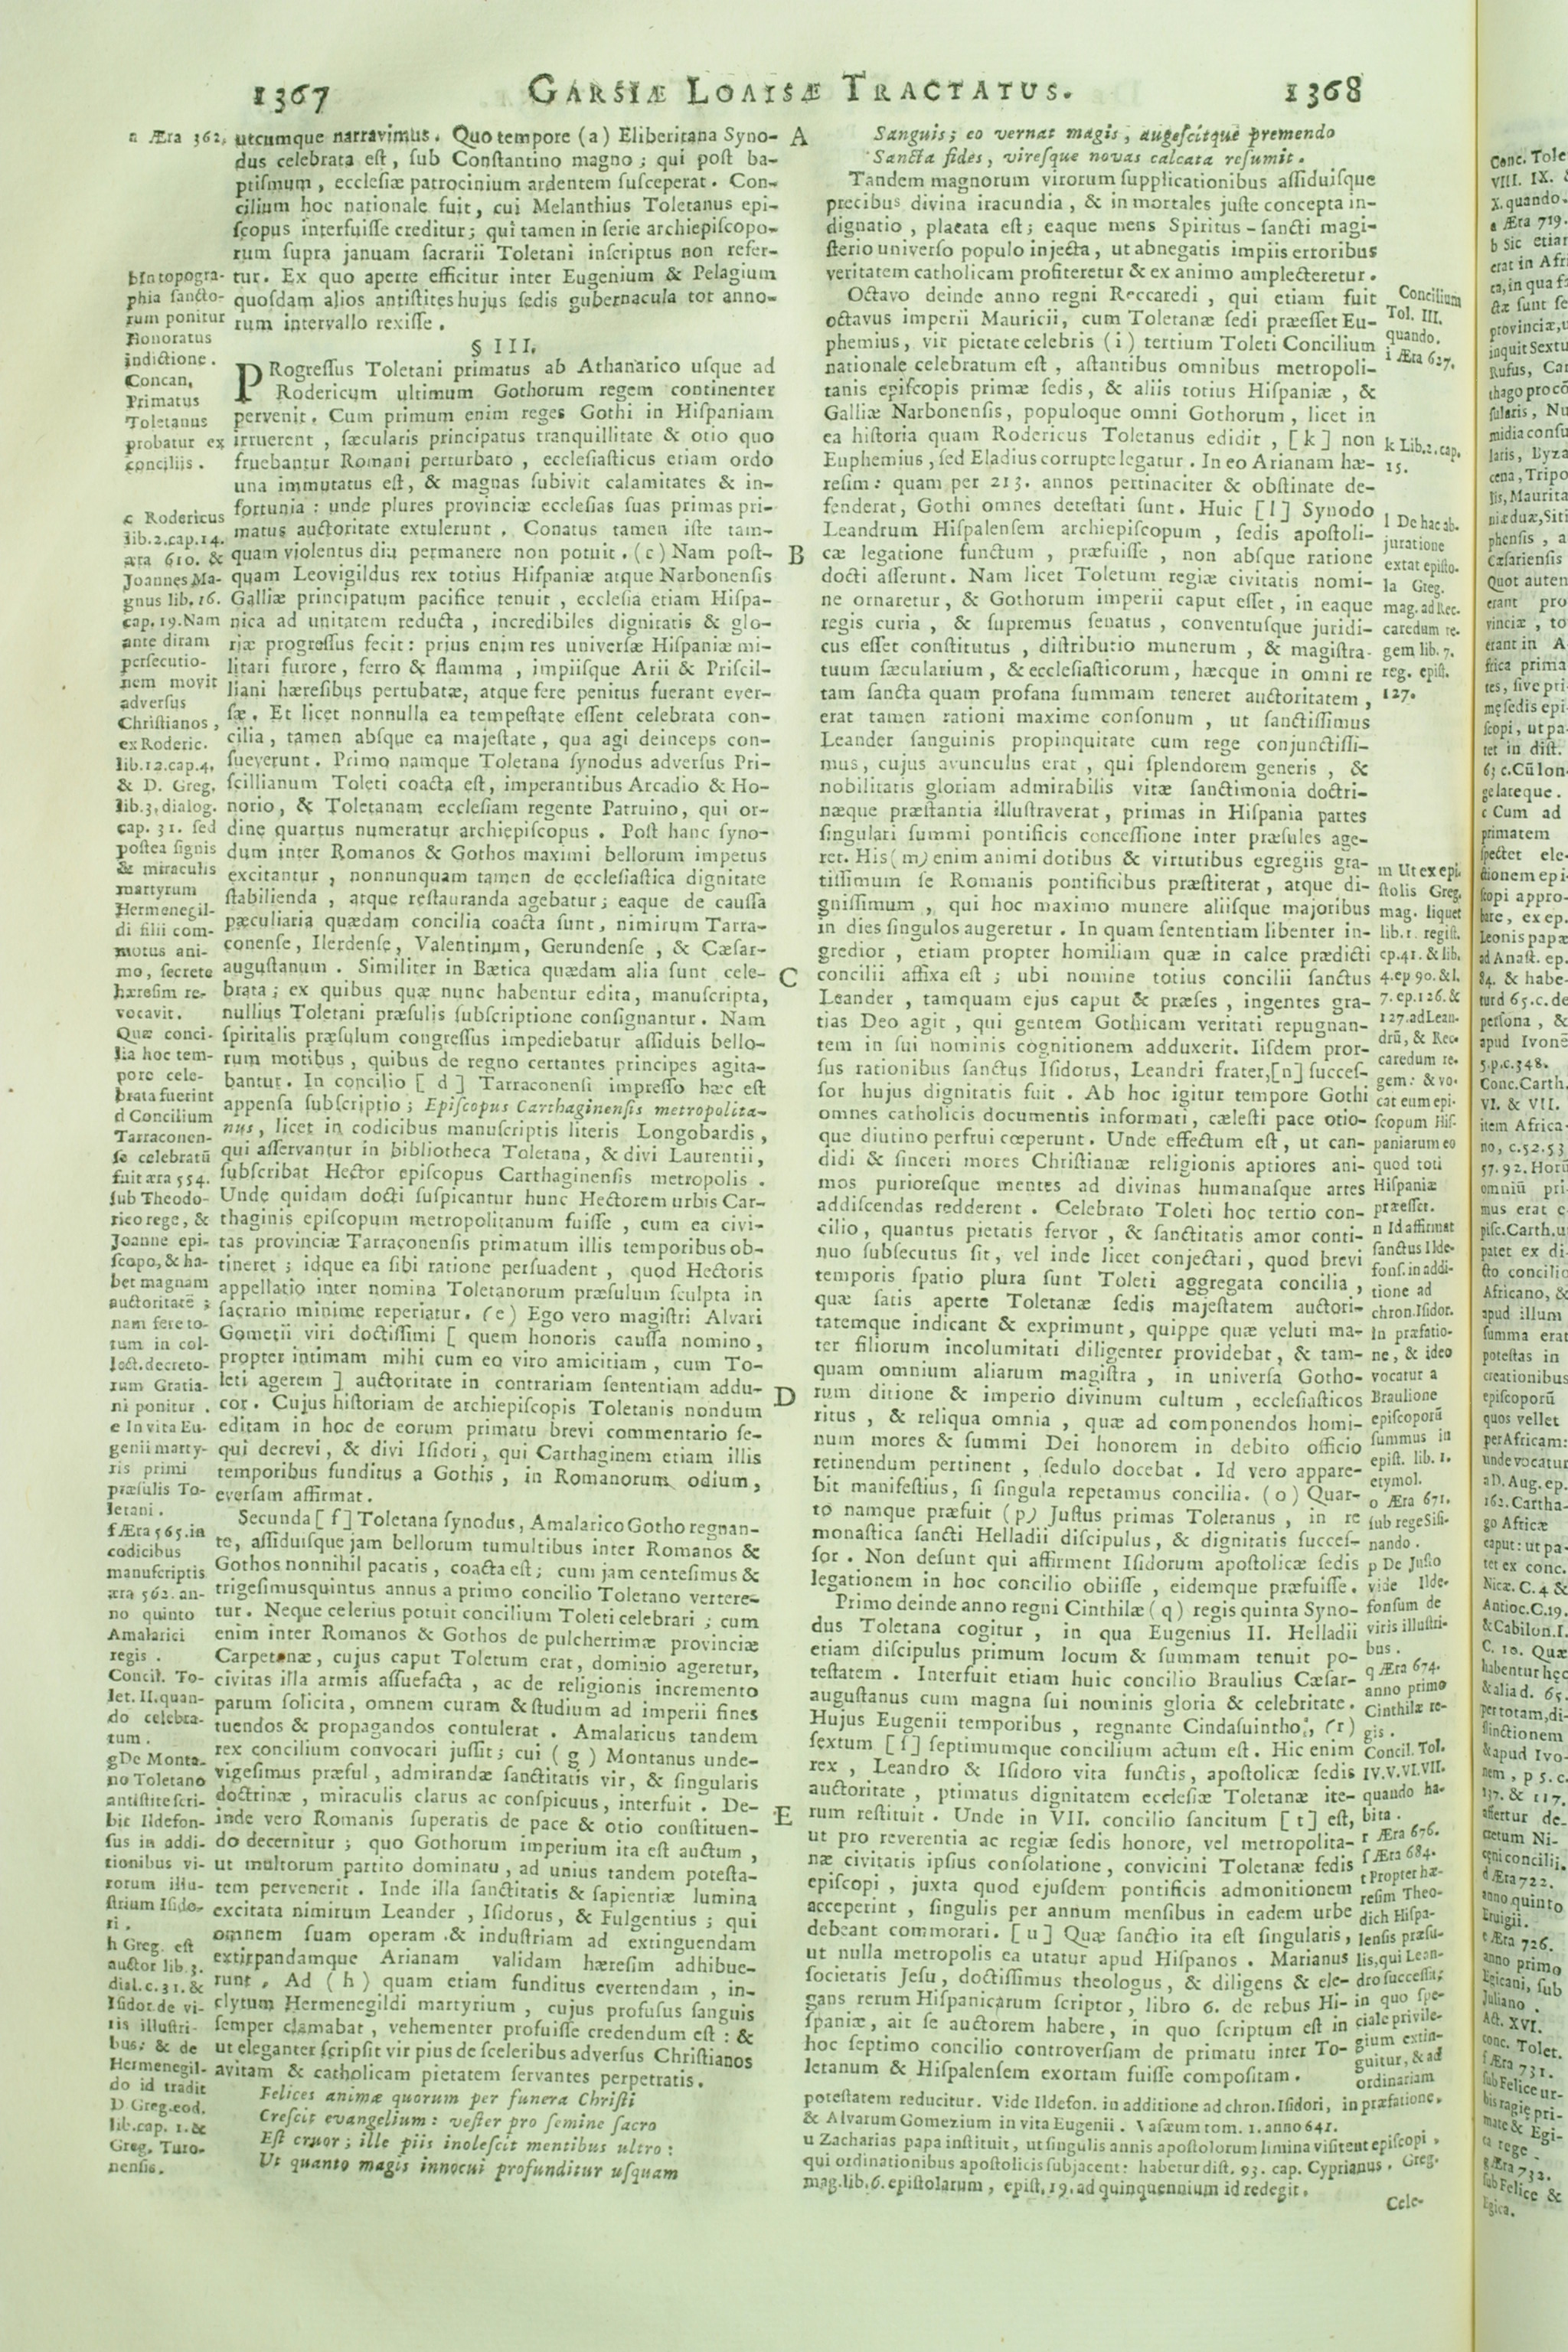 1367 GARSIÆ LOAISÆ TRACTATUS. 1368
a Æra 362.
b In topogra-
phia sancto-
rum ponitur
Honoratus
indictione.
Concan,
Primatus
Toletanus
probatur ex
conciliis.
c Rodericus
lib.2.cap.14.
æra 610. &
Joannes Ma-
gnus lib.16.
cap.19.Nam
ante diram
persecutio-
nem movit
adversus
Christianos,
ex Roderic.
lib.12.cap.4.
& D. Greg.
lib.3.dialog.
cap. 31. sed
postea signis
& miraculis
martyrum
Hermenegil-
di filii com-
motus ani-
mo, secrete
hæresim re-
vocavit.
Quæ conci-
lia hoc tem-
pore cele-
brata fuerint
d Concilium
Tarraconen-
se celebratū
fuit æra 554.
sub Theodo-
rico rege, &
Joanne epi-
scopo, & ha-
bet magnam
auctoritatē;
nam fere to-
tum in col-
lect.decreto-
rum Gratia-
ni ponitur.
e In vita Eu-
genii marty-
ris primi
præsulis To-
letani.
f Æra 565.in
codicibus
manuscriptis
æra 562. an-
no quinto
Amalarici
regis.
Concil. To-
let. II.quan-
do celebra-
tum.
g De Monta-
no Toletano
antistite scri-
bit Ildefon-
sus in addi-
tionibus vi-
rorum illu-
strium Isido-
ri.
h Greg. est
auctor lib.3.
dial.c.31.&
Isidor.de vi-
ris illustri-
bus: & de
Hermenegil-
do id tradit
D Greg.eod.
lib.cap. 1.&
Greg. Turo-
nensis.
utcumque narravimus. Quo tempore (a) Eliberitana Syno-
dus celebrata est, sub Constantino magno; qui post ba-
ptismum, ecclesiæ patrocinium ardentem susceperat. Con-
cilium hoc nationale fuit, cui Melanthius Toletanus epi-
scopus interfuisse creditur; qui tamen in serie archiepiscopo-
rum supra januam sacrarii Toletani inscriptus non refer-
tur. Ex quo aperte efficitur inter Eugenium & Pelagium
quosdam alios antistites hujus sedis gubernacula tot anno-
rum intervallo rexisse.
§ III.
PRogressus Toletani primatus ab Athanarico usque ad
Rodericum ultimum Gothorum regem continenter
pervenit. Cum primum enim reges Gothi in Hispaniam
irruerent, sæcularis principatus tranquillitate & otio quo
fruebantur Romani perturbato, ecclesiasticus etiam ordo
una immutatus est, & magnas subivit calamitates & in-
fortunia: unde plures provinciæ ecclesias suas primas pri-
matus auctoritate extulerunt. Conatus tamen iste tam-
quam violentus diu permanere non potuit. (c) Nam post-
quam Leovigildus rex totius Hispaniæ atque Narbonensis
Galliæ principatum pacifice tenuit, ecclesia etiam Hispa-
nica ad unitatem reducta, incredibiles dignitatis & glo-
riæ progressus fecit: prius enim res universæ Hispaniæ mi-
litari furore, ferro & flamma, impiisque Arii & Priscil-
liani hæresibus pertubatæ, atque fere penitus fuerant ever-
sæ. Et licet nonnulla ea tempestate essent celebrata con-
cilia, tamen absque ea majestate, qua agi deinceps con-
sueverunt. Primo namque Toletana synodus adversus Pri-
scillianum Toleti coacta est, imperantibus Arcadio & Ho-
norio, & Toletanam ecclesiam regente Patruino, qui or-
dine quartus numeratur archiepiscopus. Post hanc syno-
dum inter Romanos & Gothos maximi bellorum impetus
excitantur, nonnunquam tamen de ecclesiastica dignitate
stabilienda, atque restauranda agebatur; eaque de caussa
pæculiaria quædam concilia coacta sunt, nimirum Tarra-
conense, Ilerdense, Valentinum, Gerundense, & Cæsar-
augustanum. Similiter in Bætica quædam alia sunt cele-
brata; ex quibus quæ nunc habentur edita, manuscripta,
nullius Toletani præsulis subscriptione consignantur. Nam
spiritalis præsulum congressus impediebatur assiduis bello-
rum motibus, quibus de regno certantes principes agita-
bantur. In concilio [ d ] Tarraconensi impresso hæc est
appensa subscriptio; Episcopus Carthaginensis metropolita-
nus, licet in codicibus manuscriptis literis Longobardis,
qui asservantur in bibliotheca Toletana, & divi Laurentii,
subscribat Hector episcopus Carthaginensis metropolis.
Unde quidam docti suspicantur hunc Hectorem urbis Car-
thaginis episcopum metropolitanum fuisse, cum ea civi-
tas provinciæ Tarraconensis primatum illis temporibus ob-
tineret; idque ea sibi ratione persuadent, quod Hectoris
appellatio inter nomina Toletanorum præsulum sculpta in
sacrario minime reperiatur. (e) Ego vero magistri Alvari
Gometii viri doctissimi [ quem honoris caussa nomino,
propter intimam mihi cum eo viro amicitiam, cum To-
leti agerem ] auctoritate in contrariam sententiam addu-
cor. Cujus historiam de archiepiscopis Toletanis nondum
editam in hoc de eorum primatu brevi commentario se-
qui decrevi, & divi Isidori, qui Carthaginem etiam illis
temporibus funditus a Gothis, in Romanorum odium,
eversam affirmat.
Secunda [ f ] Toletana synodus, Amalarico Gotho regnan-
te, assiduisque jam bellorum tumultibus inter Romanos &
Gothos nonnihil pacatis, coacta est; cum jam centesimus &
trigesimusquintus annus a primo concilio Toletano vertere-
tur. Neque celerius potuit concilium Toleti celebrari; cum
enim inter Romanos & Gothos de pulcherrimæ provinciæ
Carpetanæ, cujus caput Toletum erat, dominio ageretur,
civitas illa armis assuefacta, ac de religionis incremento
parum solicita, omnem curam & studium ad imperii fines
tuendos & propagandos contulerat. Amalaricus tandem
rex concilium convocari jussit; cui ( g ) Montanus unde-
vigesimus præsul, admirandæ sanctitatis vir, & singularis
doctrinæ, miraculis clarus ac conspicuus, interfuit. De-
inde vero Romanis superatis de pace & otio constituen-
do decernitur; quo Gothorum imperium ita est auctum,
ut multorum partito dominatu, ad unius tandem potesta-
tem pervenerit. Inde illa sanctitatis & sapientiæ lumina
excitata nimirum Leander, Isidorus, & Fulgentius; qui
omnem suam operam & industriam ad extinguendam
extirpandamque Arianam validam hæresim adhibue-
runt. Ad ( h ) quam etiam funditus evertendam, in-
clytum Hermenegildi martyrium, cujus profusus sanguis
semper clamabat, vehementer profuisse credendum est: &
ut eleganter scripsit vir pius de sceleribus adversus Christianos
avitam & catholicam pietatem servantes perpetratis.
Felices animæ quorum per funera Christi
Crescit evangelium: vester pro semine sacro
Est cruor; ille piis inolescit mentibus ultro:
Ut quanto magis innocui profunditur usquam
A
B
C
D
E
Sanguis; eo vernat magis, augescitque premendo
Sancta fides, viresque novas calcata resumit.
Tandem magnorum virorum supplicationibus assiduisque
precibus divina iracundia, & in mortales juste concepta in-
dignatio, placata est; eaque mens Spiritus-sancti magi-
sterio universo populo injecta, ut abnegatis impiis erroribus
veritatem catholicam profiteretur & ex animo amplecteretur.
Octavo deinde anno regni Reccaredi, qui etiam fuit
octavus imperii Mauricii, cum Toletanæ sedi præesset Eu-
phemius, vir pietate celebris (i) tertium Toleti Concilium
nationale celebratum est, astantibus omnibus metropoli-
tanis episcopis primæ sedis, & aliis totius Hispaniæ, &
Galliæ Narbonensis, populoque omni Gothorum, licet in
ea historia quam Rodericus Toletanus edidit, [k] non
Euphemius, sed Eladius corrupte legatur. In eo Arianam hæ-
resim: quam per 213. annos pertinaciter & obstinate de-
fenderat, Gothi omnes detestati sunt. Huic [l] Synodo
Leandrum Hispalensem archiepiscopum, sedis apostoli-
cæ legatione functum, præfuisse, non absque ratione
docti asserunt. Nam licet Toletum regiæ civitatis nomi-
ne ornaretur, & Gothorum imperii caput esset, in eaque
regis curia, & supremus senatus, conventusque juridi-
cus esset constitutus, distributio munerum, & magistra-
tuum sæcularium, & ecclesiasticorum, hæcque in omni re
tam sancta quam profana summam teneret auctoritatem,
erat tamen rationi maxime consonum, ut sanctissimus
Leander sanguinis propinquitate cum rege conjunctissi-
mus, cujus avunculus erat, qui splendorem generis, &
nobilitatis gloriam admirabilis vitæ sanctimonia doctri-
næque præstantia illustraverat, primas in Hispania partes
singulari summi pontificis concessione inter præsules age-
ret. His (m) enim animi dotibus & virtutibus egregiis gra-
tissimum se Romanis pontificibus præstiterat, atque di-
gnissimum, qui hoc maximo munere aliisque majoribus
in dies singulos augeretur. In quam sententiam libenter in-
gredior, etiam propter homiliam quæ in calce prædicti
concilii affixa est; ubi nomine totius concilii sanctus
Leander, tamquam ejus caput & præses, ingentes gra-
tias Deo agit, qui gentem Gothicam veritati repugnan-
tem in sui nominis cognitionem adduxerit. Iisdem pror-
sus rationibus sanctus Isidorus, Leandri frater,[n] succes-
sor hujus dignitatis fuit. Ab hoc igitur tempore Gothi
omnes catholicis documentis informati, cælesti pace otio-
que diutino perfrui cœperunt. Unde effectum est, ut can-
didi & sinceri mores Christianæ religionis aptiores ani-
mos purioresque mentes ad divinas humanasque artes
addiscendas redderent. Celebrato Toleti hoc tertio con-
cilio, quantus pietatis fervor, & sanctitatis amor conti-
nuo subsecutus sit, vel inde licet conjectari, quod brevi
temporis spatio plura sunt Toleti aggregata concilia,
quæ satis aperte Toletanæ sedis majestatem auctori-
tatemque indicant & exprimunt, quippe quæ veluti ma-
ter filiorum incolumitati diligenter providebat, & tam-
quam omnium aliarum magistra, in universa Gotho-
rum ditione & imperio divinum cultum, ecclesiasticos
ritus, & reliqua omnia, quæ ad componendos homi-
num mores & summi Dei honorem in debito officio
retinendum pertinent, sedulo docebat. Id vero appare-
bit manifestius, si singula repetamus concilia. (o) Quar-
to namque præfuit (p) Justus primas Toletanus, in re
monastica sancti Helladii discipulus, & dignitatis succes-
sor. Non desunt qui affirment Isidorum apostolicæ sedis
legationem in hoc concilio obiisse, eidemque præfuisse.
Primo deinde anno regni Cinthilæ (q) regis quinta Syno-
dus Toletana cogitur, in qua Eugenius II. Helladii
etiam discipulus primum locum & summam tenuit po-
testatem. Interfuit etiam huic concilio Braulius Cæsar-
augustanus cum magna sui nominis gloria & celebritate.
Hujus Eugenii temporibus, regnante Cindasuintho, (r)
sextum [s] septimumque concilium actum est. Hic enim
rex, Leandro & Isidoro vita functis, apostolicæ sedis
auctoritate, ptimatus dignitatem ecclesiæ Toletanæ ite-
rum restituit. Unde in VII. concilio sancitum [t] est,
ut pro reverentia ac regiæ sedis honore, vel metropolita-
næ civitatis ipsius consolatione, convicini Toletanæ sedis
episcopi, juxta quod ejusdem pontificis admonitionem
acceperint, singulis per annum mensibus in eadem urbe
debeant commorari. [u] Quæ sanctio ita est singularis,
ut nulla metropolis ea utatur apud Hispanos. Marianus
societatis Jesu, doctissimus theologus, & diligens & ele-
gans rerum Hispanicarum scriptor, libro 6. de rebus Hi-
spaniæ, ait se auctorem habere, in quo scriptum est in
hoc septimo concilio controversiam de primatu inter To-
letanum & Hispalensem exortam fuisse compositam.
Concilium
Tol. III.
quando.
i Æra 627.
k Lib.2.cap.
15.
l De hac ab-
juratione
extat episto-
la Greg.
mag. ad Rec-
caredum re-
gem lib. 7.
reg. epist.
127.
m Ut ex epi-
stolis Greg.
mag. liquet
lib.1. regist.
ep.41. & lib.
4.ep 90.&l.
7. ep.126.&
127.ad Lean-
drū, & Rec-
caredum re-
gem: & vo-
cat eum epi-
scopum His-
paniarum eo
quod toti
Hispaniæ
præesset.
n Id affirmat
sanctus Ilde-
fons.in addi-
tione ad
chron.Isidor.
In præfatio-
ne, & ideo
vocatur a
Braulione
episcoporū
summus in
epist. lib. 1.
etymol.
o Æra 671.
sub rege Sisi-
nando.
p De Justo
vide Ilde-
fonsum de
viris illustri-
bus.
q Æra 674.
anno primo
Cinthilæ re-
gis.
Concil. Tol.
IV.V.VI.VII.
quando ha-
bita.
r Æra 676.
s Æra 684.
t Propter hæ-
resim Theo-
dich Hispa-
lensis præsu-
lis, qui Lean-
dro successit;
in quo spe-
ciale privile-
gium extin-
guitur, & ad
ordinariam
potestatem reducitur. Vide Ildefon. in additione ad chron. Isidori, in præfatione,
& Alvarum Gomezium in vita Eugenii. Vasæum tom. 1. anno 641.
u Zacharias papa instituit, ut singulis annis apostolorum limina visitent episcopi,
qui ordinationibus apostolicis subjacent: habetur dist. 93. cap. Cyprianus. Greg.
mag. lib. 6. epistolarum, epist. 19. ad quinquennium id redegit.
Cele-
Conc. Tole
VIII. IX. &
X. quando.
a Æra 719.
b Sic etiam
erat in Afri
provinciæ,u
inquit Sextu
Rufus, Car
thago procō
sularis, Nu
midia consu
laris, Byza
cena, Tripo
lis, Maurita
niæ duæ, Siti
phensis, a
Cæsariensis
Quot auten
erant pro
vinciæ, to
erant in A
frica prima
tes, sive pri
mæ sedis epi
scopi, ut pa
tet in dist.
c Cum ad
primatem
spectet ele
ctionem epi
scopi appro
bare, ex ep.
Leonis papæ
ad Anast. ep.
84. & habe
tur d 65.c.de
persona, &
apud Ivonē
5.p.c.348.
Conc.Carth.
VI. & VII.
item Africa
no, c.52.53
57.92. Horū
omniū pri
mus erat e
pisc.Carth.u
patet ex di
cto concilio
Africano, &
apud illum
summa erat
potestas in
creationibus
episcoporū
quos vellet
per Africam:
unde vocatur
a D. Aug. ep.
162. Cartha-
go Africæ
caput: ut pa-
tet ex conc.
Nicæ. C. 4 &
Antioc.C.19.
& Cabilon.I.
C. 10. Quæ
habentur hęc
& alia d. 65.
per totam, di-
stinctionem
& apud Ivo-
nem, p 5. c.
137. & 117.
affertur de-
cretum Ni-
cęni concilii.
d Æra 722.
anno quinto
Eruigii.
e Æra 726.
anno primo
Egicani, sub
Juliano.
Act. XVI.
conc. Tolet.
f Æra 731.
sub Felice ur-
bis regiæ pri-
mate & Egi-
ca rege
g Æra 732.
sub Felice &
Egica.